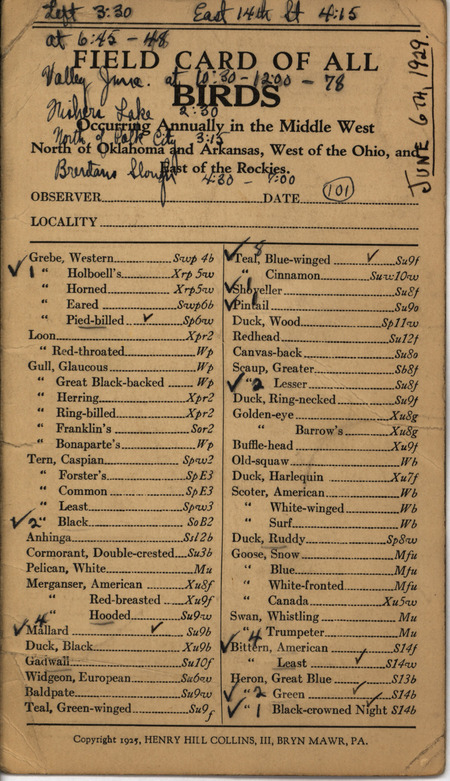 Left 3:30 East 14th St 4:15
at 6:45 - 48
FIELD CARD OF ALL
Valley June. at 10:30-12:00 - 78
BIRDS
Fishers Lake 2:30
Occurring Annually in the Middle West
North of Polk City 3:15
North of Oklahoma and Arkansas, West of the Ohio, and
East of the Rockies.
4:30 - 7:00
JUNE 6TH, 1929.
OBSERVER DATE 101
LOCALITY
Grebe, Western Swp 4b
✓1 " Holboell's Xrp 5w
" Horned Xrp5w
" Eared Swp6b
" Pied-billed ✓ Sp6w
Loon Xpr2
" Red-throated Wp
Gull, Glaucous Wp
" Great Black-backed Wp
" Herring Xpr2
" Ring-billed Xpr2
" Franklin's Sor2
" Bonaparte's Wp
Tern, Caspian Spw2
" Forster's SpE3
" Common SpE3
" Least Spw3
✓2 " Black SoB2
Anhinga Ss12b
Cormorant, Double-crested Su3b
Pelican, White Mu
Merganser, American Xu8f
" Red-breasted Xu9f
" Hooded Su9w
✓4 Mallard ✓ Su9b
Duck, Black Xu9b
Gadwall Su10f
Widgeon, European Su6w
Baldpate Su9w
Teal, Green-winged Su9f
✓8 Teal, Blue-winged ✓ Su9f
" Cinnamon Suw10w
✓1 Shoveller Su8f
✓1 Pintail Su9o
Duck, Wood Sp11w
Redhead Su12f
Canvas-back Su8o
Scaup, Greater Sb8f
✓2 " Lesser Su8f
Duck, Ring-necked Su9f
Golden-eye Xu8g
" Barrow's Xu8g
Buffle-head Xu9f
Old-squaw Wb
Duck, Harlequin Xu7f
Scoter, American Wb
" White-winged Wb
" Surf Wb
Duck, Ruddy Sp8w
Goose, Snow Mfu
" Blue Mfu
" White-fronted Mfu
" Canada Xu5w
Swan, Whistling Mu
" Trumpeter Mu
✓4 Bittern, American S14f
" Least ✓ S14w
Heron, Great Blue S13b
✓2 " Green ✓ S14b
✓1 " Black-crowned Night S14b
Copyright 1925, HENRY HILL COLLINS, III, BRYN MAWR, PA.